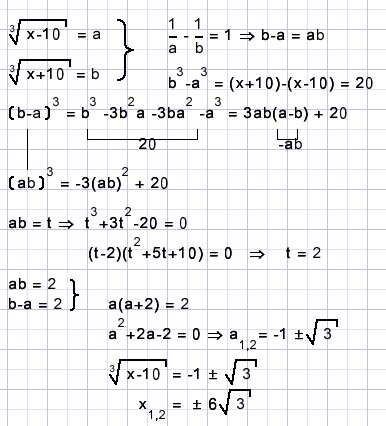 ∛(x-10) = a
∛(x+10) = b
1/a - 1/b = 1 ⇒ b-a = ab
b³-a³ = (x+10)-(x-10) = 20
(b-a)³ = b³ -3b²a -3ba² -a³ = 3ab(a-b) + 20
20
-ab
(ab)³ = -3(ab)² + 20
ab = t ⇒ t³+3t²-20 = 0
(t-2)(t²+5t+10) = 0 ⇒ t = 2
ab = 2
b-a = 2
a(a+2) = 2
a²+2a-2 = 0 ⇒ a₁,₂ = -1 ±√3
∛(x-10) = -1 ± √3
x₁,₂ = ± 6√3